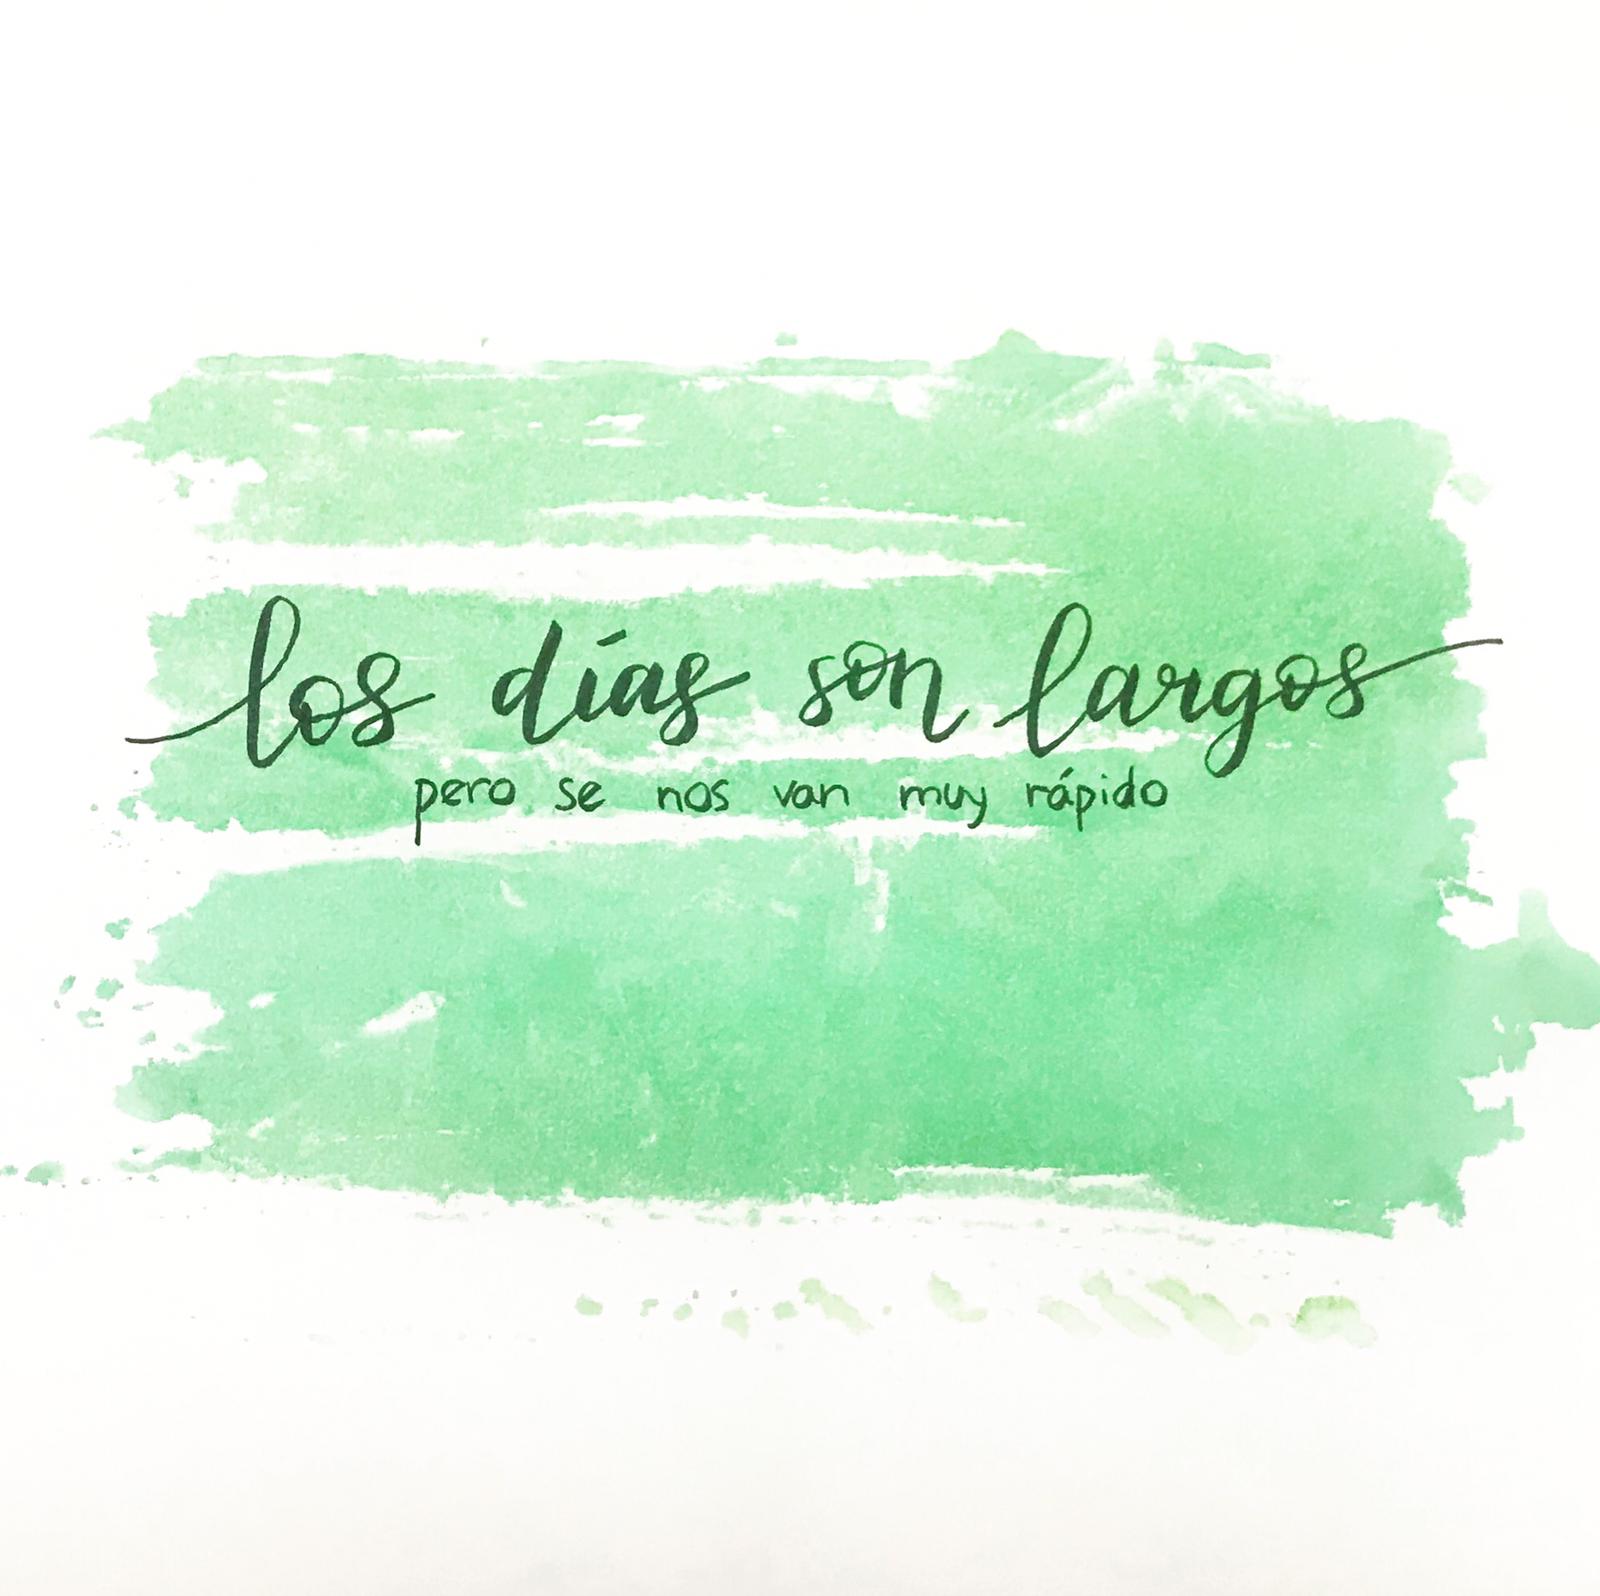 los días son largos
pero se nos van muy rápido